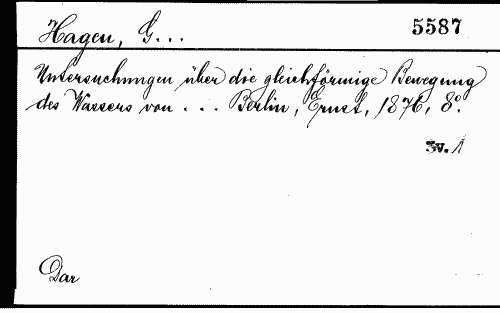 Hagen, G... 5587
Untersuchungen über die gleichförmige Bewegung
des Wassers von ... Berlin, Ernst, 1876, 8°.
3v. 1
Dar